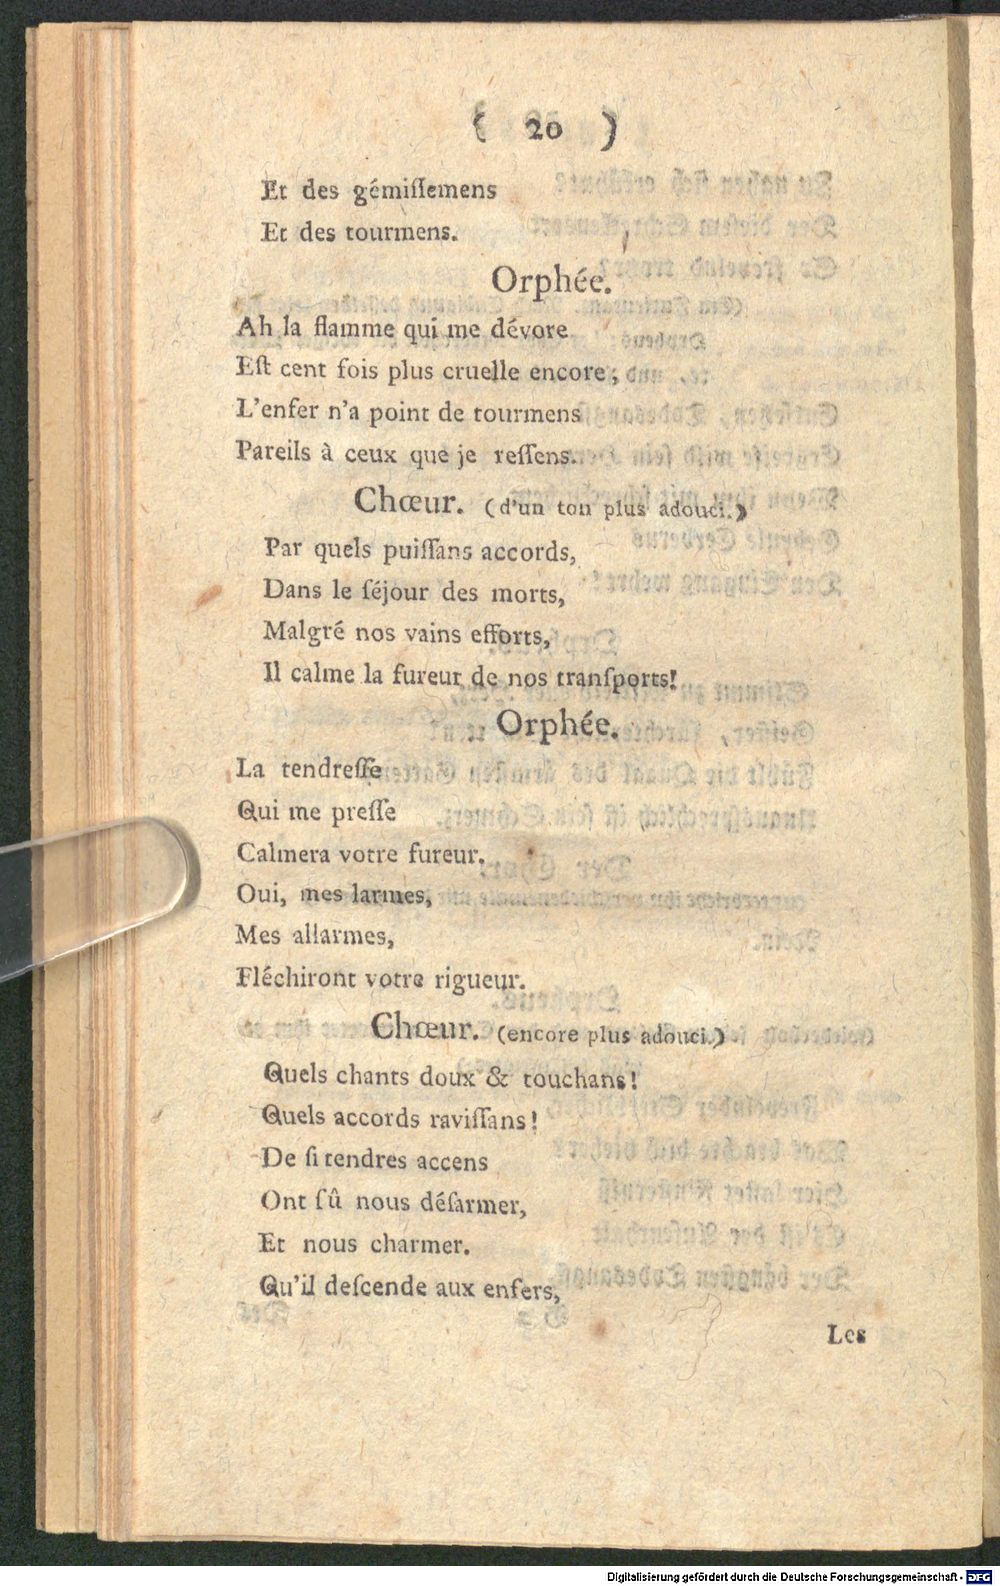 ( 20 )
Et des gémiſſemens
Et des tourmens.
Orphée.
Ah la flamme qui me dévore
Eſt cent fois plus cruelle encore;
L'enfer n'a point de tourmens
Pareils à ceux que je reſſens.
Chœur. (d'un ton plus adouci.)
Par quels puiſſans accords,
Dans le ſéjour des morts,
Malgré nos vains efforts,
Il calme la fureur de nos tranſports!
Orphée.
La tendreſſe
Qui me preſſe
Calmera votre fureur.
Oui, mes larmes,
Mes allarmes,
Fléchiront votre rigueur.
Chœur. (encore plus adouci.)
Quels chants doux & touchans!
Quels accords raviſſans!
De ſi tendres accens
Ont ſû nous déſarmer,
Et nous charmer.
Qu'il deſcende aux enfers,
Les
Digitalisierung gefördert durch die Deutsche Forschungsgemeinschaft - DFG